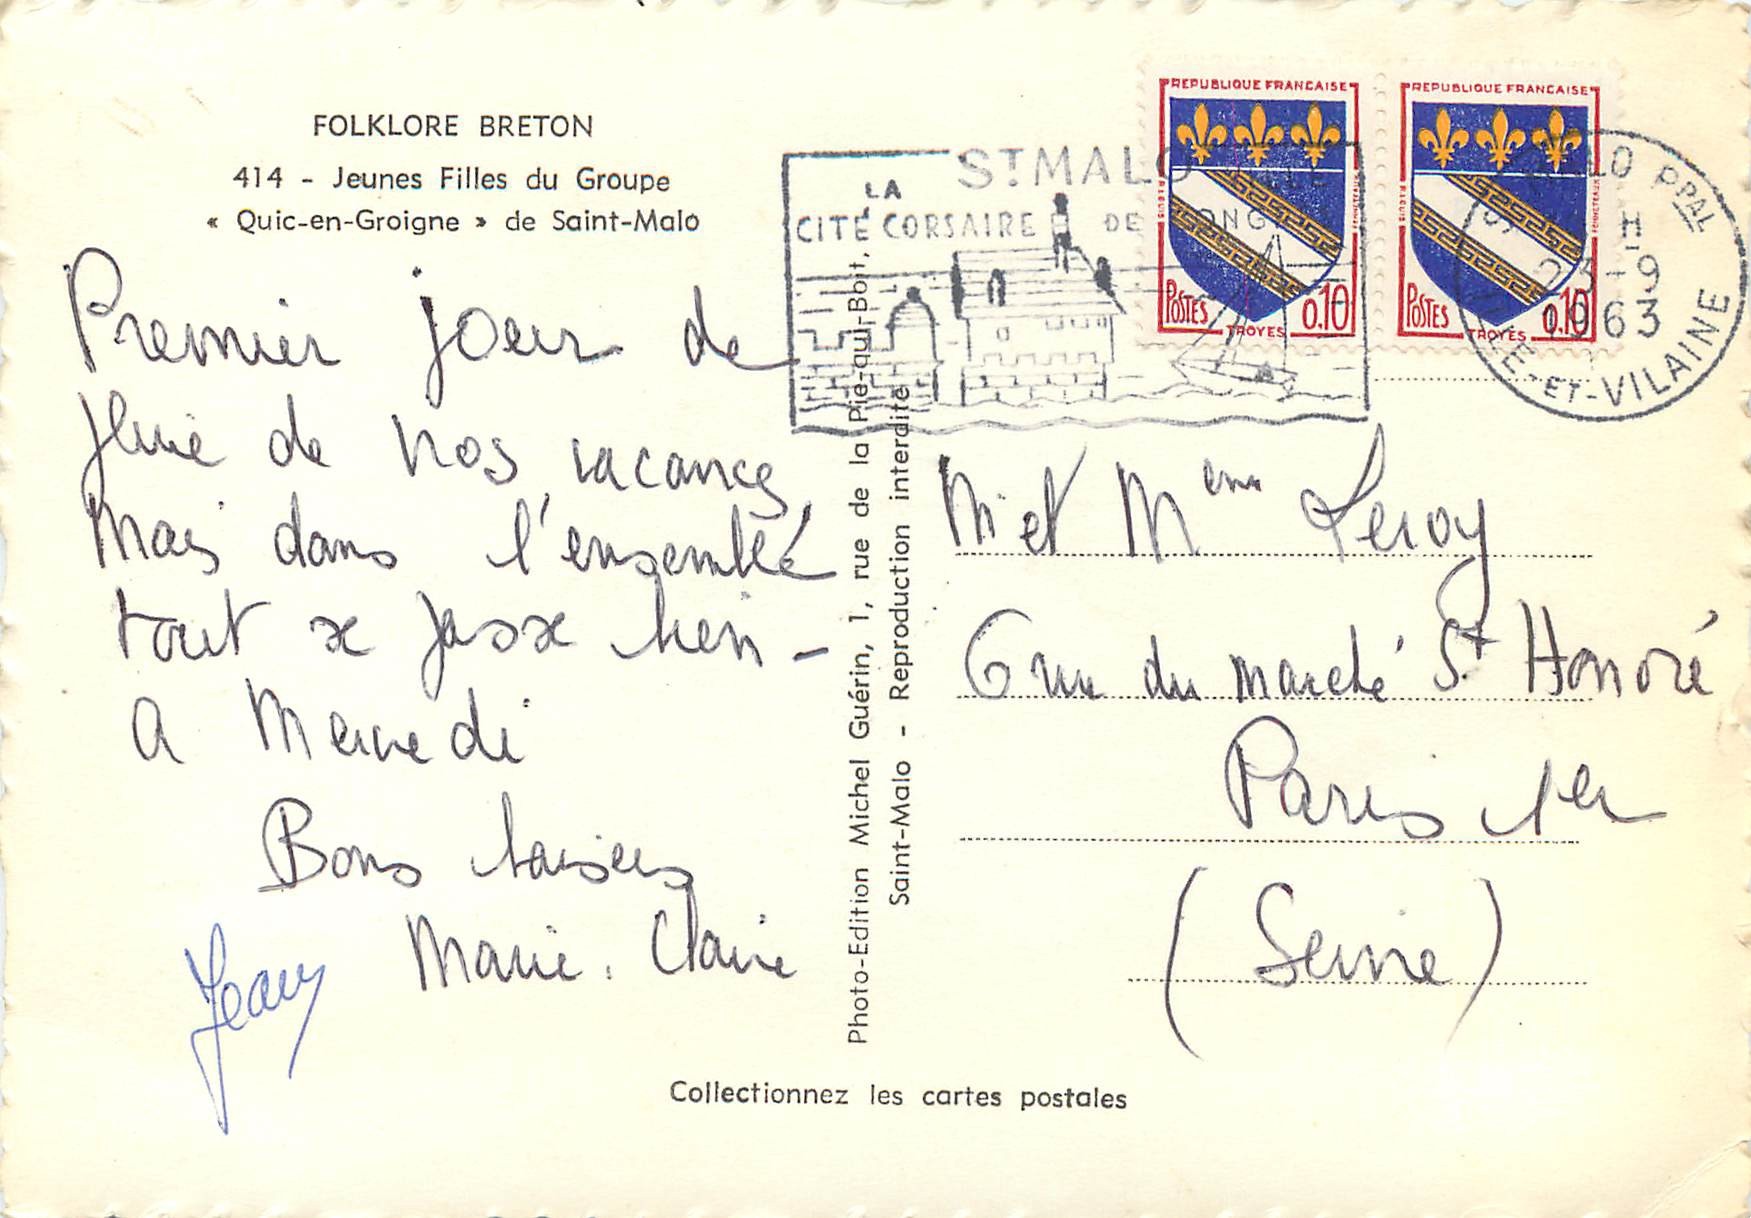 FOLKLORE BRETON
414 - Jeunes Filles du Groupe
« Quic-en-Groigne » de Saint-Malo
Premier jour de
pluie de nos vacances
Mais dans l'ensemble
tout se passe bien -
A Mercredi
Bons baisers
Marie. Claire
Jean
Photo-Edition Michel Guérin, 1, rue de la Pie-qui-Boit,
Saint-Malo - Reproduction interdite
ST MALO
LA
CITÉ CORSAIRE DE
REPUBLIQUE FRANCAISE
POSTES 0,10
TROYES
REPUBLIQUE FRANCAISE
POSTES 0,10
TROYES
MALO PPAL
H
23-9
1963
ILLE-ET-VILAINE
M et Mme Leroy
6 rue du marché St Honoré
Paris 1er
(Seine)
Collectionnez les cartes postales